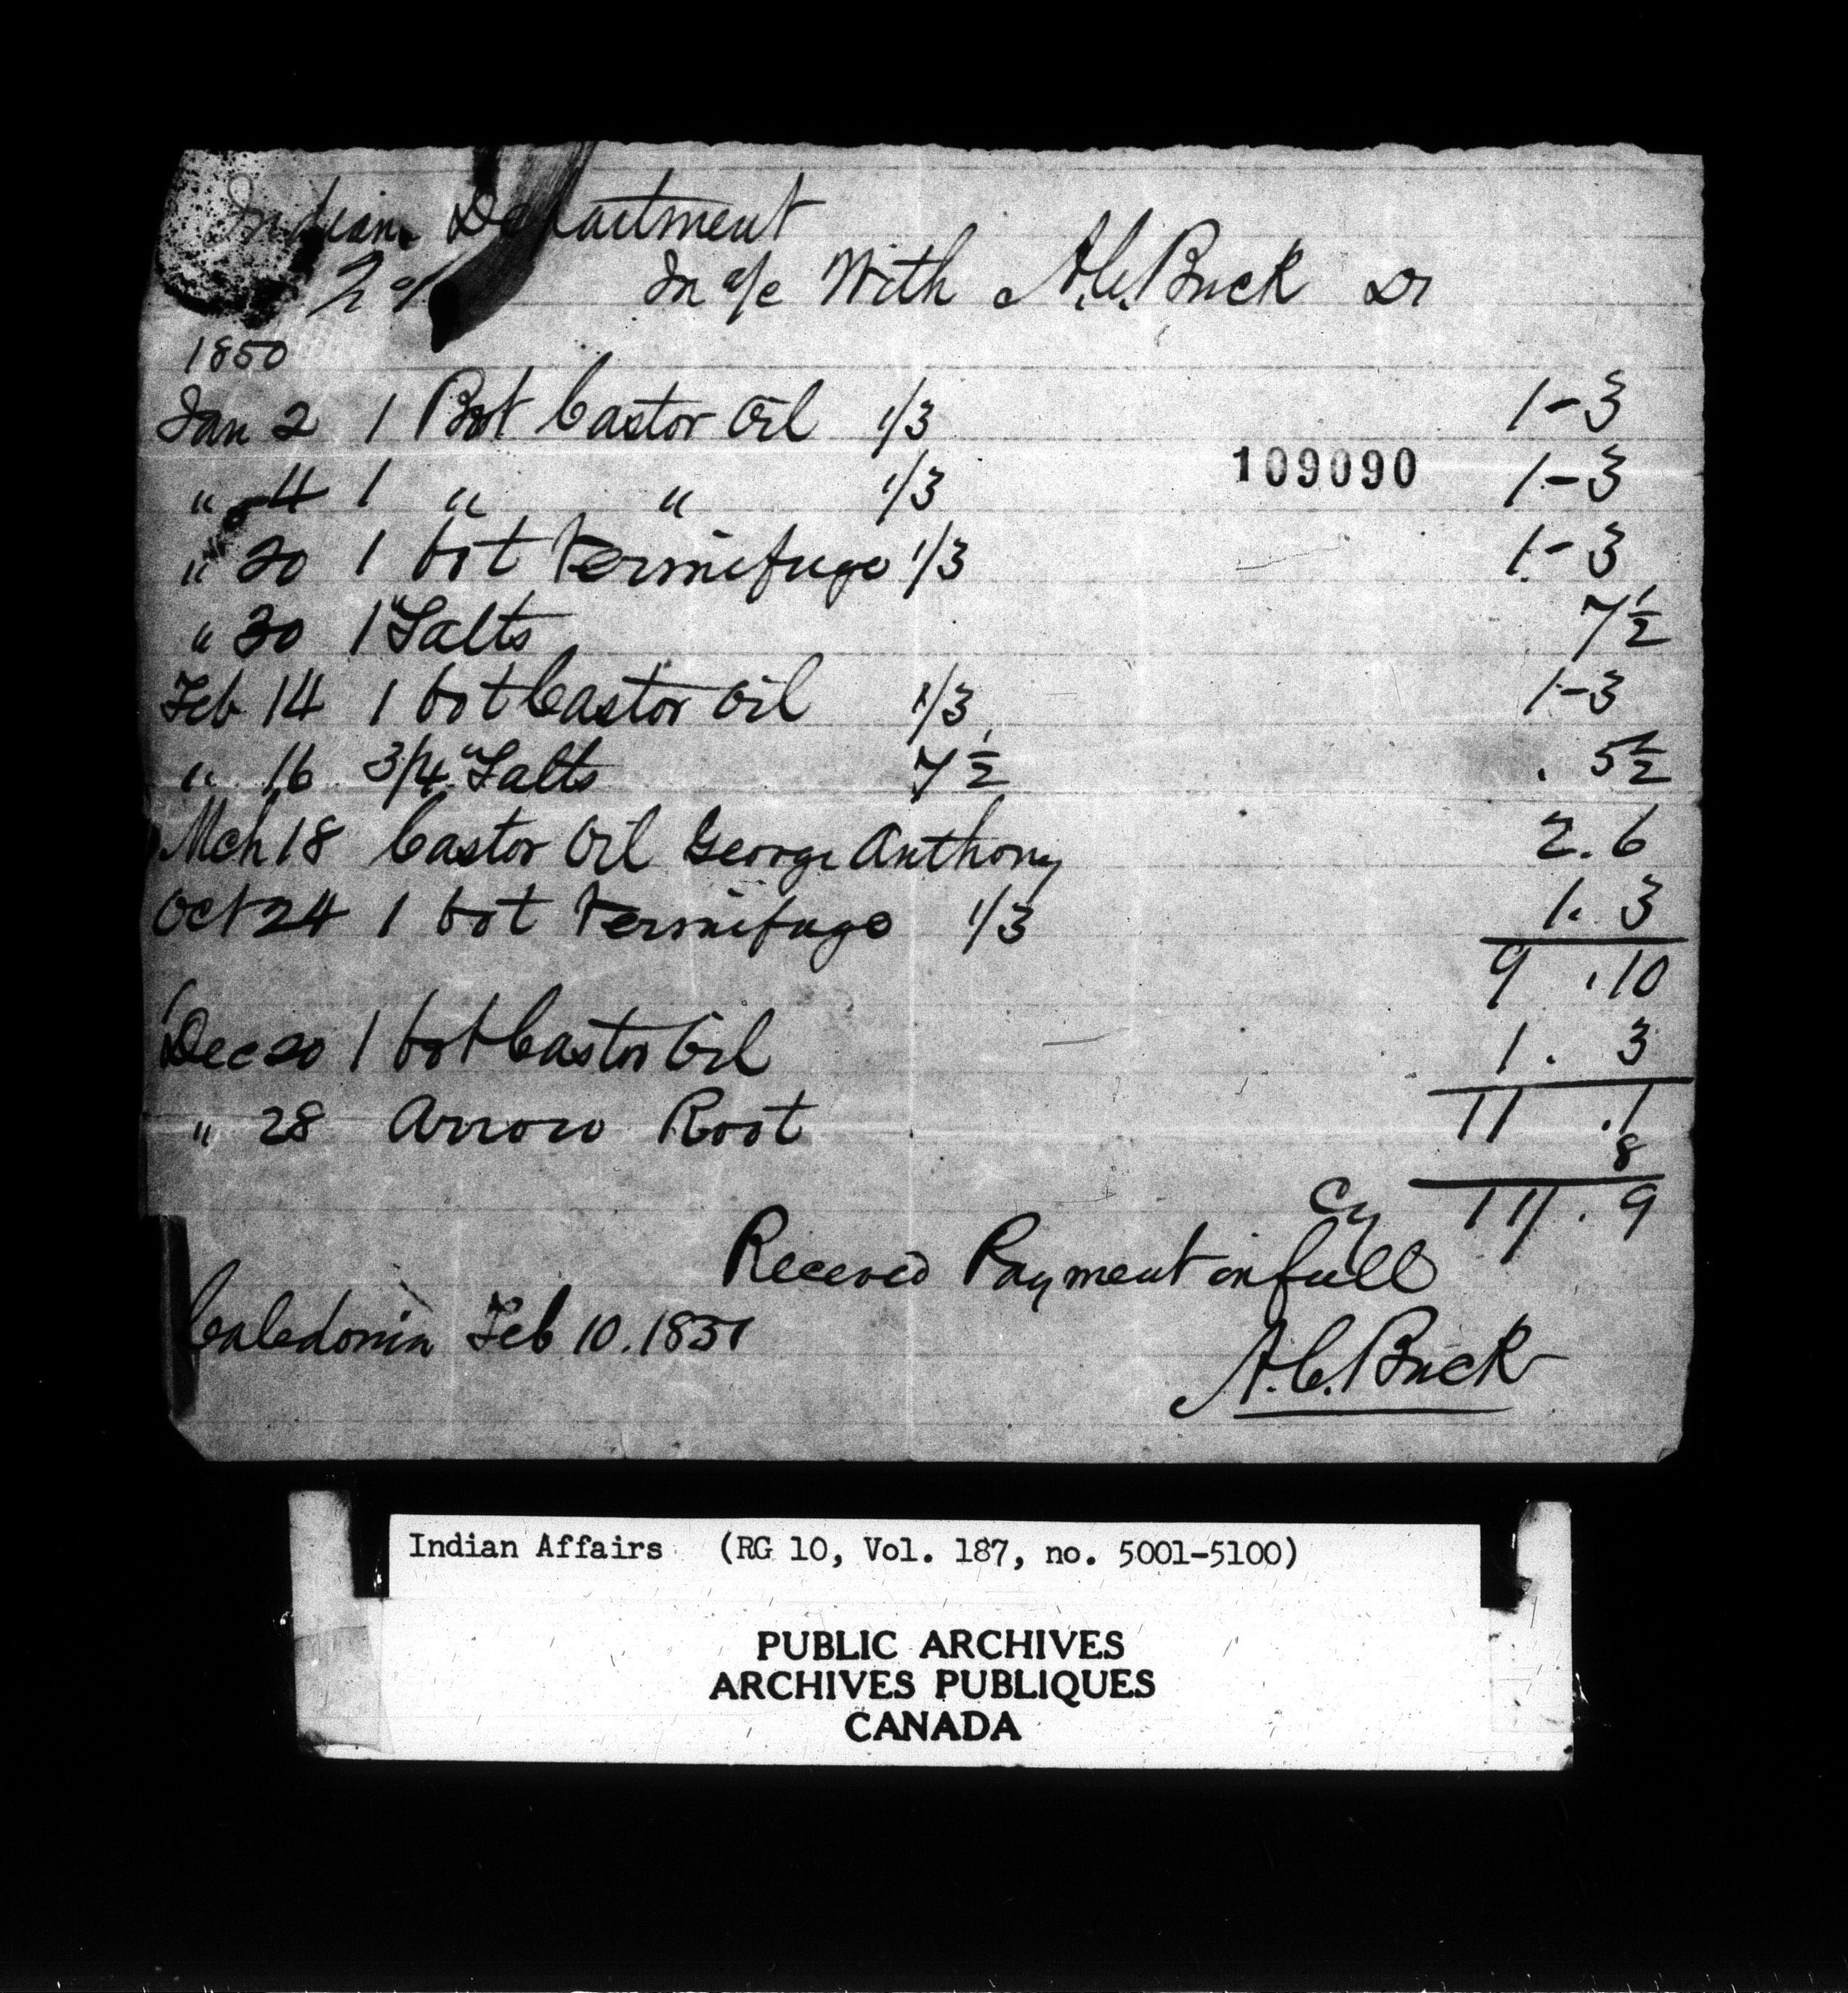 Indian Department
In a/c With A.C. Buck Dr
1850
Jan 2 1 Bot Castor Oil 1/3 1-3
" 4 1 " " 1/3 1-3
109090
" 20 1 bot Vermifuge 1/3 1-3
" 30 1" Salts 7½
Feb 14 1 bot Castor Oil 1/3 1-3
" 16 3/4" Salts 7½ . 5½
Mch 18 Castor Oil George Anthony 2.6
Oct 24 1 bot Vermifuge 1/3 1. 3
9 .10
Dec 20 1 bot Castor Oil 1. 3
11 .1
" 28 Arrow Root 8
Cy 11. 9
Received Payment in full
Caledonia Feb 10. 1851
A.C. Buck
Indian Affairs (RG 10, Vol. 187, no. 5001-5100)
PUBLIC ARCHIVES
ARCHIVES PUBLIQUES
CANADA